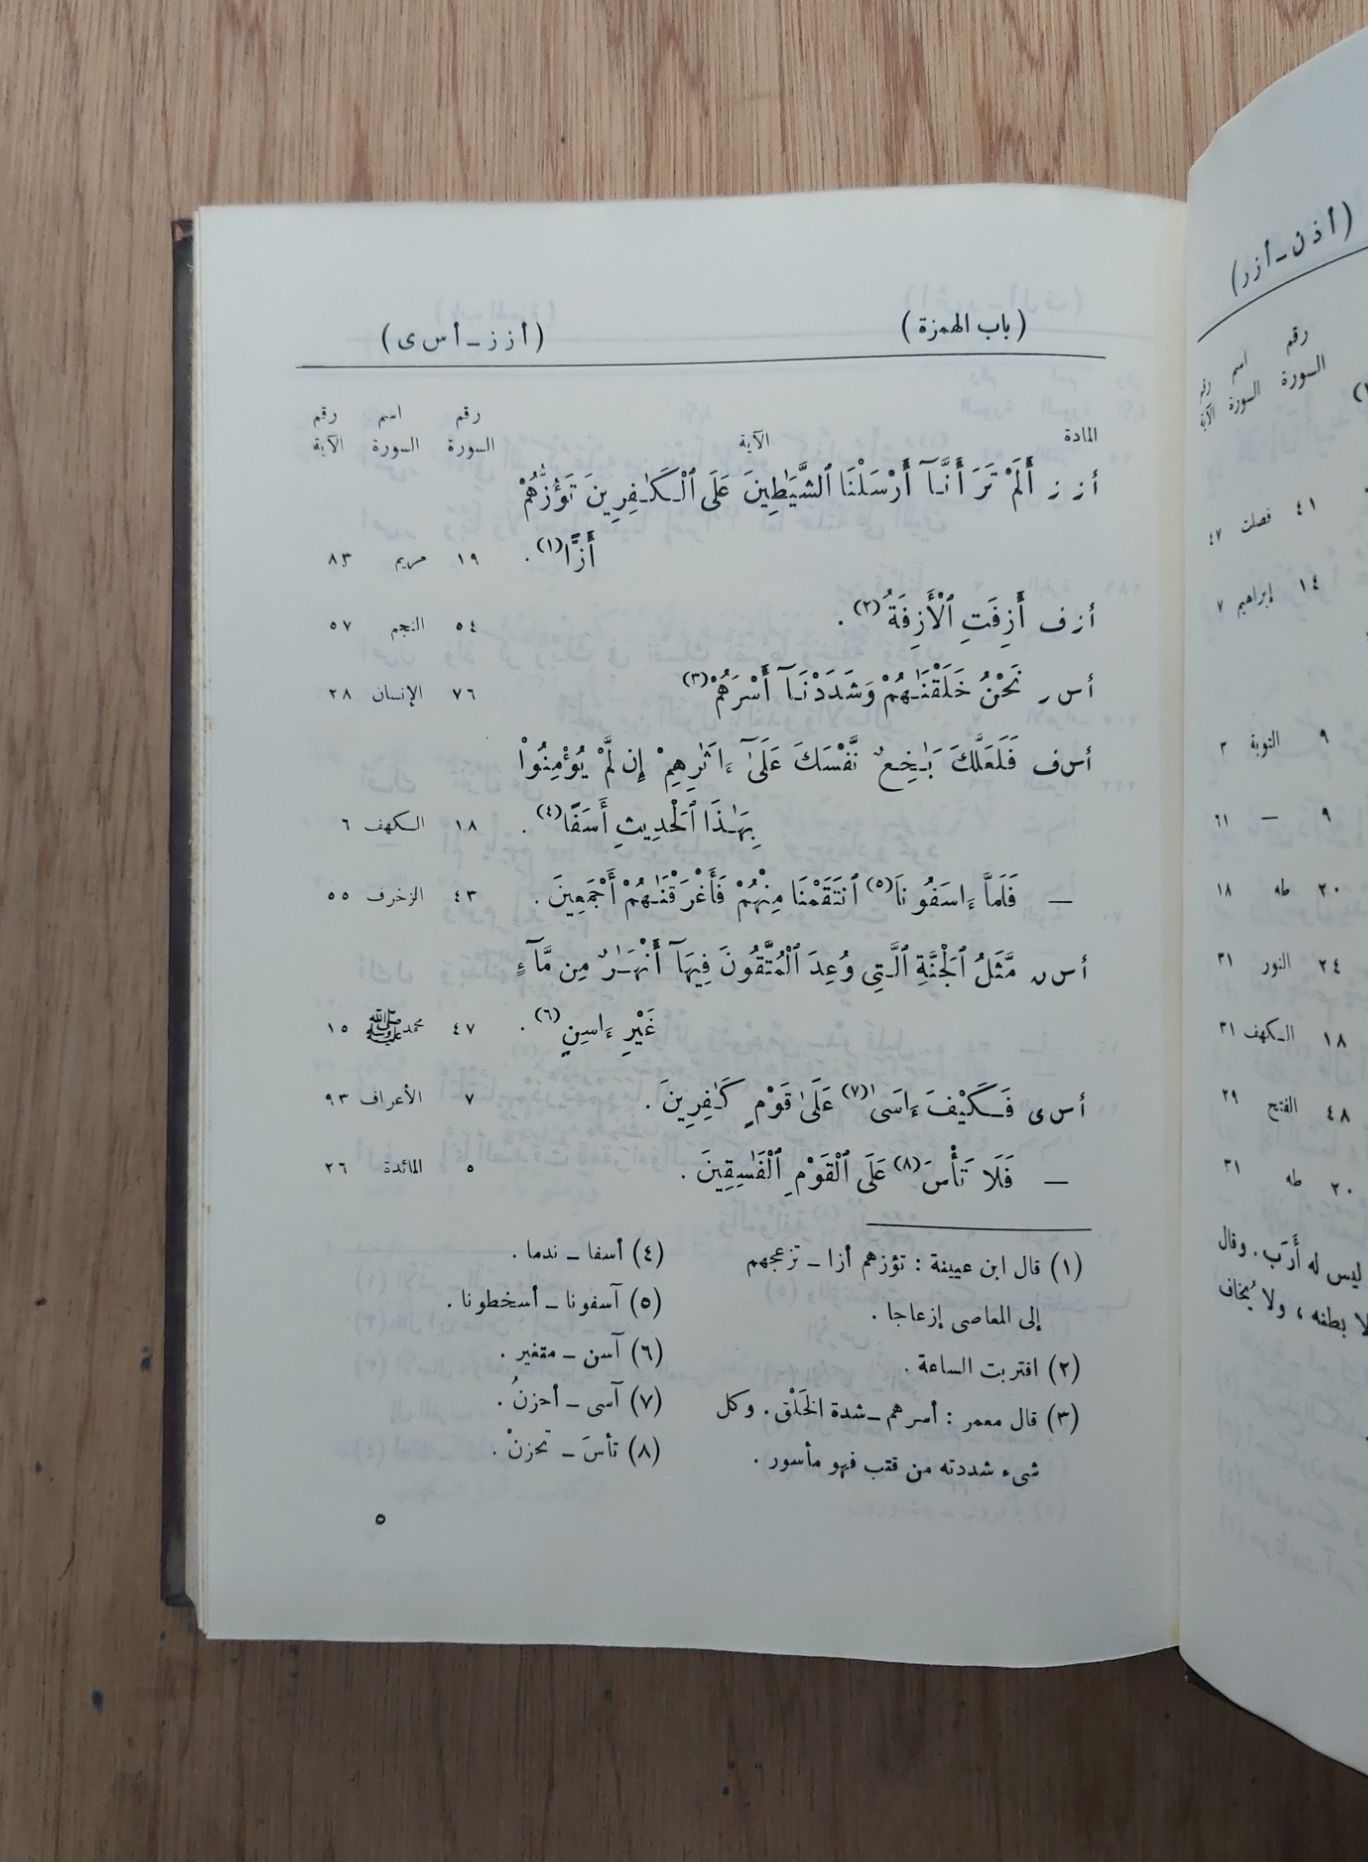 (باب الهمزة) (أ ز ز ــ أ س ى)
رقم اسم رقم
المادة الآية السورة السورة الآية
أ ز ز أَلَمْ تَرَ أَنَّآ أَرْسَلْنَا ٱلشَّيَٰطِينَ عَلَى ٱلْكَٰفِرِينَ تَؤُزُّهُمْ
أَزًّا(١) . ١٩ مريم ٨٣
أ ز ف أَزِفَتِ ٱلْأَزِفَةُ(٢) . ٥٤ النجم ٥٧
أ س ر نَحْنُ خَلَقْنَٰهُمْ وَشَدَدْنَآ أَسْرَهُمْ(٣) ٧٦ الإنسان ٢٨
أ س ف فَلَعَلَّكَ بَٰخِعٌ نَّفْسَكَ عَلَىٰٓ ءَاثَٰرِهِمْ إِن لَّمْ يُؤْمِنُوا۟
بِهَٰذَا ٱلْحَدِيثِ أَسَفًا(٤) . ١٨ الكهف ٦
ــ فَلَمَّآ ءَاسَفُونَا(٥) ٱنتَقَمْنَا مِنْهُمْ فَأَغْرَقْنَٰهُمْ أَجْمَعِينَ . ٤٣ الزخرف ٥٥
أ س ن مَّثَلُ ٱلْجَنَّةِ ٱلَّتِى وُعِدَ ٱلْمُتَّقُونَ فِيهَآ أَنْهَٰرٌ مِن مَّآءٍ
غَيْرِ ءَاسِنٍ(٦) . ٤٧ محمد ﷺ ١٥
أ س ى فَكَيْفَ ءَاسَىٰ(٧) عَلَىٰ قَوْمٍ كَٰفِرِينَ . ٧ الأعراف ٩٣
ــ فَلَا تَأْسَ(٨) عَلَى ٱلْقَوْمِ ٱلْفَٰسِقِينَ . ٥ المائدة ٢٦
(١) قال ابن عيينة : تؤزهم أزا ــ تزعجهم
إلى المعاصى إزعاجا .
(٢) اقتربت الساعة .
(٣) قال معمر : أسرهم ــ شدة الخَلْق . وكل
شىء شددته من قتب فهو مأسور .
(٤) أسفا ــ ندما .
(٥) آسفونا ــ أسخطونا .
(٦) آسن ــ متغير .
(٧) آسى ــ أحزنُ .
(٨) تأسَ ــ تحزنْ .
٥
(أ ذ ن ــ أ ز ر)
رقم اسم رقم
السورة السورة الآية
٤١ فصلت ٤٧
١٤ إبراهيم ٧
٩ التوبة ٣
٩ ــ ٦١
٢٠ طه ١٨
٢٤ النور ٣١
١٨ الكهف ٣١
٤٨ الفتح ٢٩
٢٠ طه ٣١
ليس له أَرَب . وقال
بطنه ، ولا يُخاف